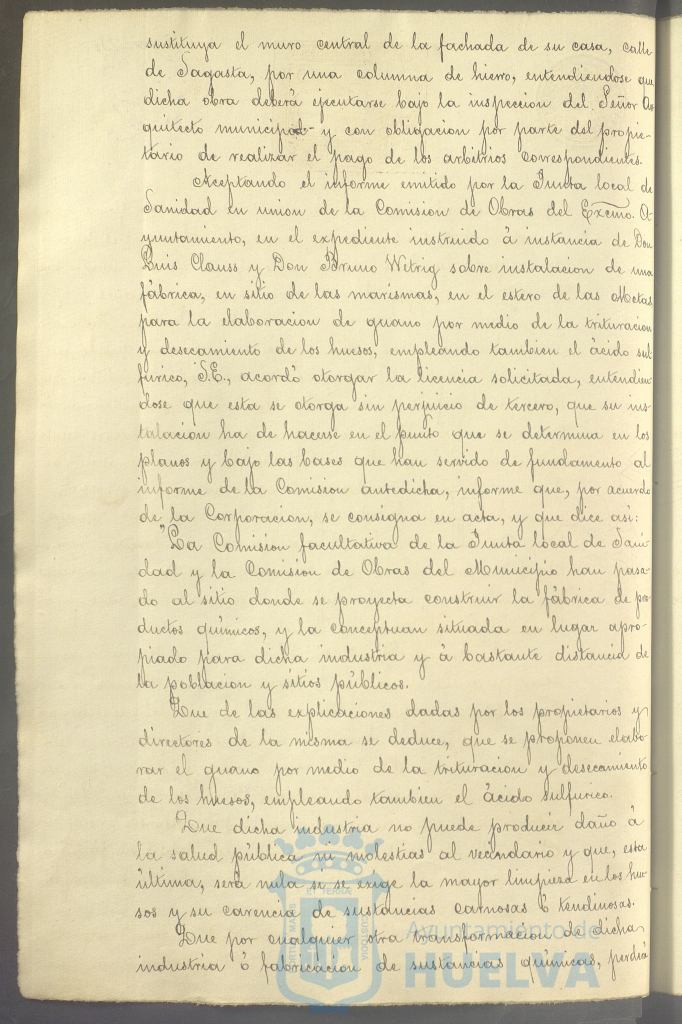 sustituya el muro central de la fachada de su casa, calle
de Sagasta, por una columna de hierro, entendiendose que
dicha obra deberá ejecutarse bajo la inspeccion del Señor Ar-
quitecto municipal y con obligacion por parte del propie-
tario de realizar el pago de los arbitrios correspondientes.
Aceptando el informe emitido por la Junta local de
Sanidad en union de la Comision de Obras del Excmo. A-
yuntamiento, en el expediente instruido á instancia de Don
Luis Clauss y Don Bruno Wetrig sobre instalacion de una
fábrica, en sitio de las marismas, en el estero de las Metas
para la elaboracion de guano por medio de la trituracion
y desecamiento de los huesos, empleando tambien el ácido sul-
fúrico, S.E., acordó otorgar la licencia solicitada, entendien-
dose que esta se otorga sin perjuicio de tercero, que su ins-
talacion ha de hacerse en el punto que se determina en los
planos y bajo las bases que han servido de fundamento al
informe de la Comision antedicha, informe que, por acuerdo
de la Corporacion, se consigna en acta, y que dice así:
"La Comision facultativa de la Junta local de Sani-
dad y la Comision de Obras del Municipio han pasa-
do al sitio donde se proyecta construir la fábrica de pro-
ductos químicos, y la conceptuan situada en lugar apro-
piado para dicha industria y á bastante distancia de
la poblacion y sitios públicos.
Que de las explicaciones dadas por los propietarios y
directores de la misma se deduce, que se proponen elabo-
rar el guano por medio de la trituracion y desecamiento
de los huesos, empleando tambien el ácido sulfurico.
Que dicha industria no puede producir daño á
la salud pública ni molestias al vecindario y que, esta
última, será nula si se exige la mayor limpieza en los hue-
sos y su carencia de sustancias carnosas ó tendinosas.
Que por cualquier otra transformacion de dicha
industria ó fabricacion de sustancias químicas, perdiá
Ayuntamiento de
HUELVA